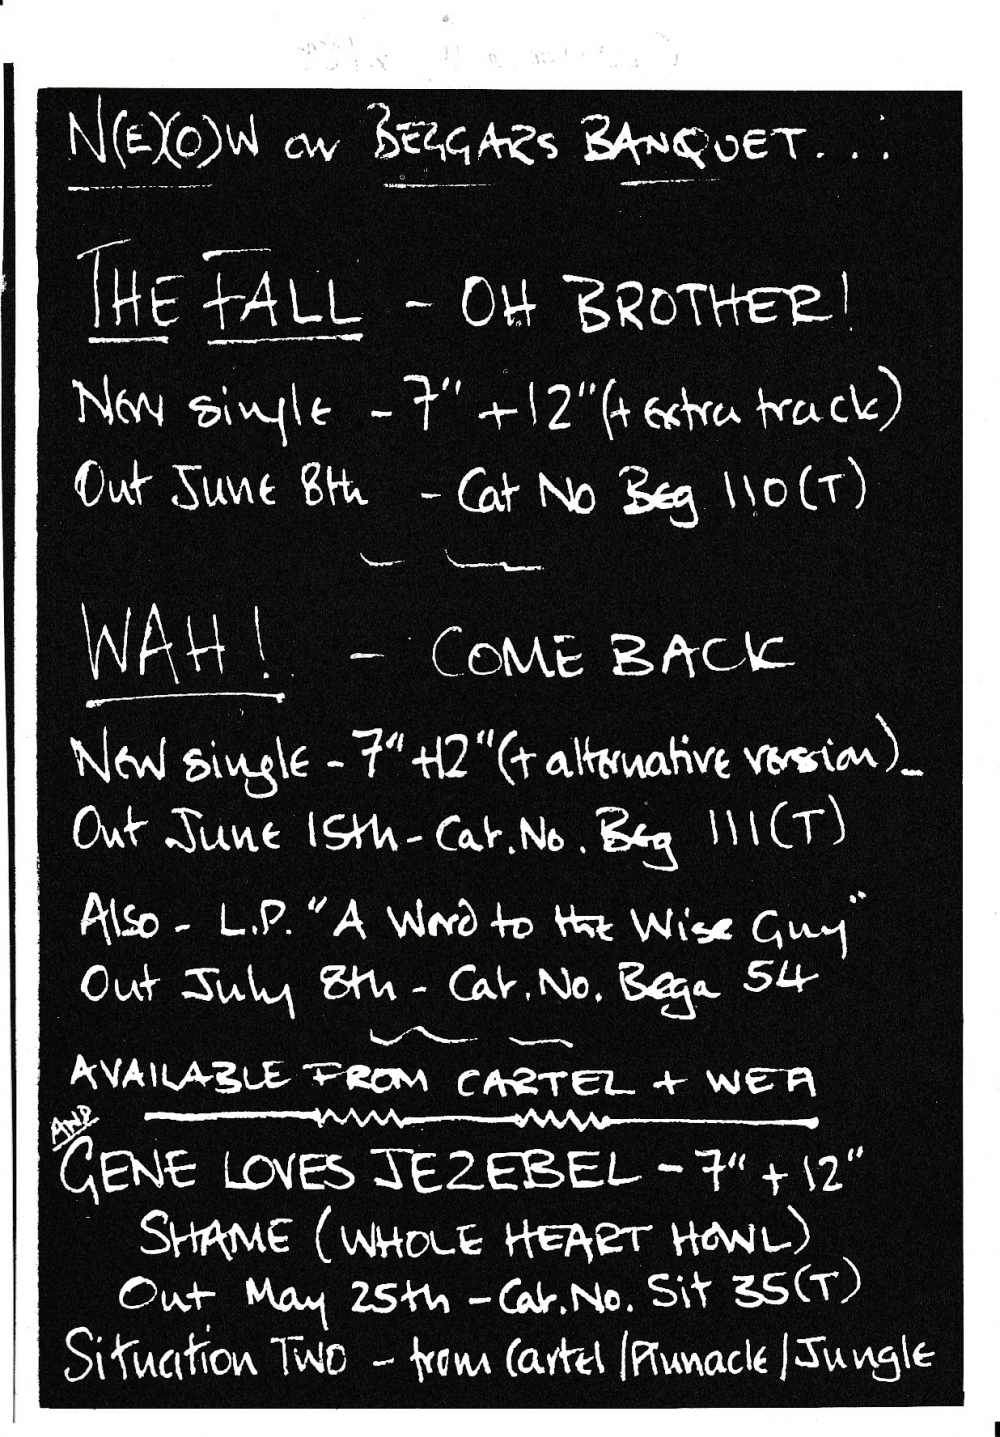 N(E)(O)W on BEGGARS BANQUET...
THE FALL - OH BROTHER!
New single - 7" + 12" (+ extra track)
Out June 8th - Cat No Beg 110(T)
WAH! - COME BACK
New single - 7" + 12" (+ alternative version)_
Out June 15th - Cat. No. Beg 111(T)
Also - L.P. "A Word to the Wise Guy"
Out July 8th - Cat. No. Bega 54
AVAILABLE FROM CARTEL + WEA
AND
GENE LOVES JEZEBEL - 7" + 12"
SHAME (WHOLE HEART HOWL)
Out May 25th - Cat. No. Sit 35(T)
Situation Two - from Cartel/Pinnacle/Jungle